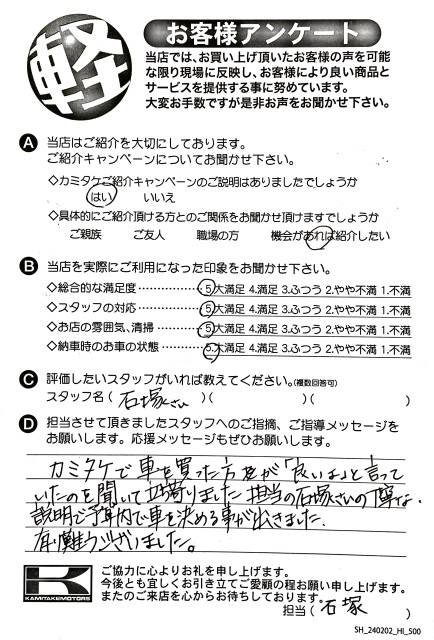 軽
お客様アンケート
当店では、お買い上げ頂いたお客様の声を可能
な限り現場に反映し、お客様により良い商品と
サービスを提供する事に努めています。
大変お手数ですが是非お声をお聞かせ下さい。
A 当店はご紹介を大切にしております。
ご紹介キャンペーンについてお聞かせ下さい。
◇カミタケご紹介キャンペーンのご説明はありましたでしょうか
はい いいえ
◇具体的にご紹介頂ける方とのご関係をお聞かせ頂けますでしょうか
ご親族 ご友人 職場の方 機会があれば紹介したい
B 当店を実際にご利用になった印象をお聞かせ下さい。
◇総合的な満足度 5.大満足 4.満足 3.ふつう 2.やや不満 1.不満
◇スタッフの対応 5.大満足 4.満足 3.ふつう 2.やや不満 1.不満
◇お店の雰囲気、清掃 5.大満足 4.満足 3.ふつう 2.やや不満 1.不満
◇納車時のお車の状態 5.大満足 4.満足 3.ふつう 2.やや不満 1.不満
C 評価したいスタッフがいれば教えてください。(複数回答可)
スタッフ名( 石塚さん )( )( )
D 担当させて頂きましたスタッフへのご指摘、ご導メッセージを
お願いします。応援メッセージもぜひお願いします。
カミタケで車を買った方が「良いよ」と言って
いたのを聞いて立寄りました。担当の石塚さんの丁寧な
説明で予算内で車を決める事が出きました。
有難うございました。
K
KAMITAKEMOTORS
ご協力に心よりお礼を申し上げます。
今後とも宜しくお引き立てご愛顧の程お願い申し上げます。
またのご来店を心からお待ちしております。
担当( 石塚 )
SH_240202_HI_500